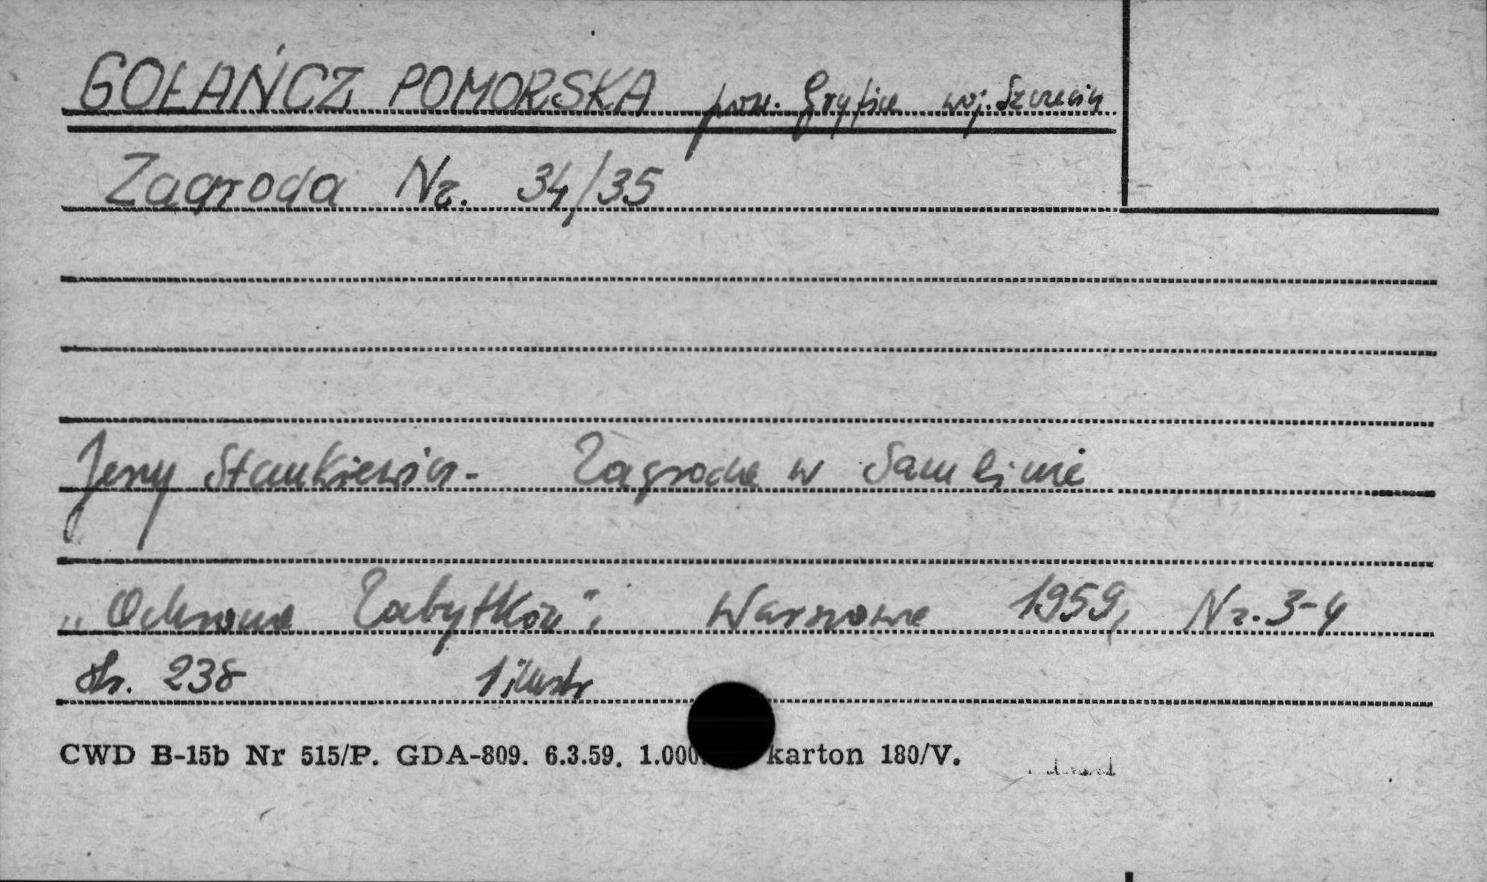 GOŁAŃCZ POMORSKA pow. Gryfice woj. Szczecin
Zagroda Nr. 34/35
Jerzy Stankiewicz - Zagroda w Samlinie
„Ochrona Zabytków", Warszawa 1959, Nr. 3-4
str. 238 1 ilustr
CWD B-15b Nr 515/P. GDA-809. 6.3.59. 1.000. karton 180/V.